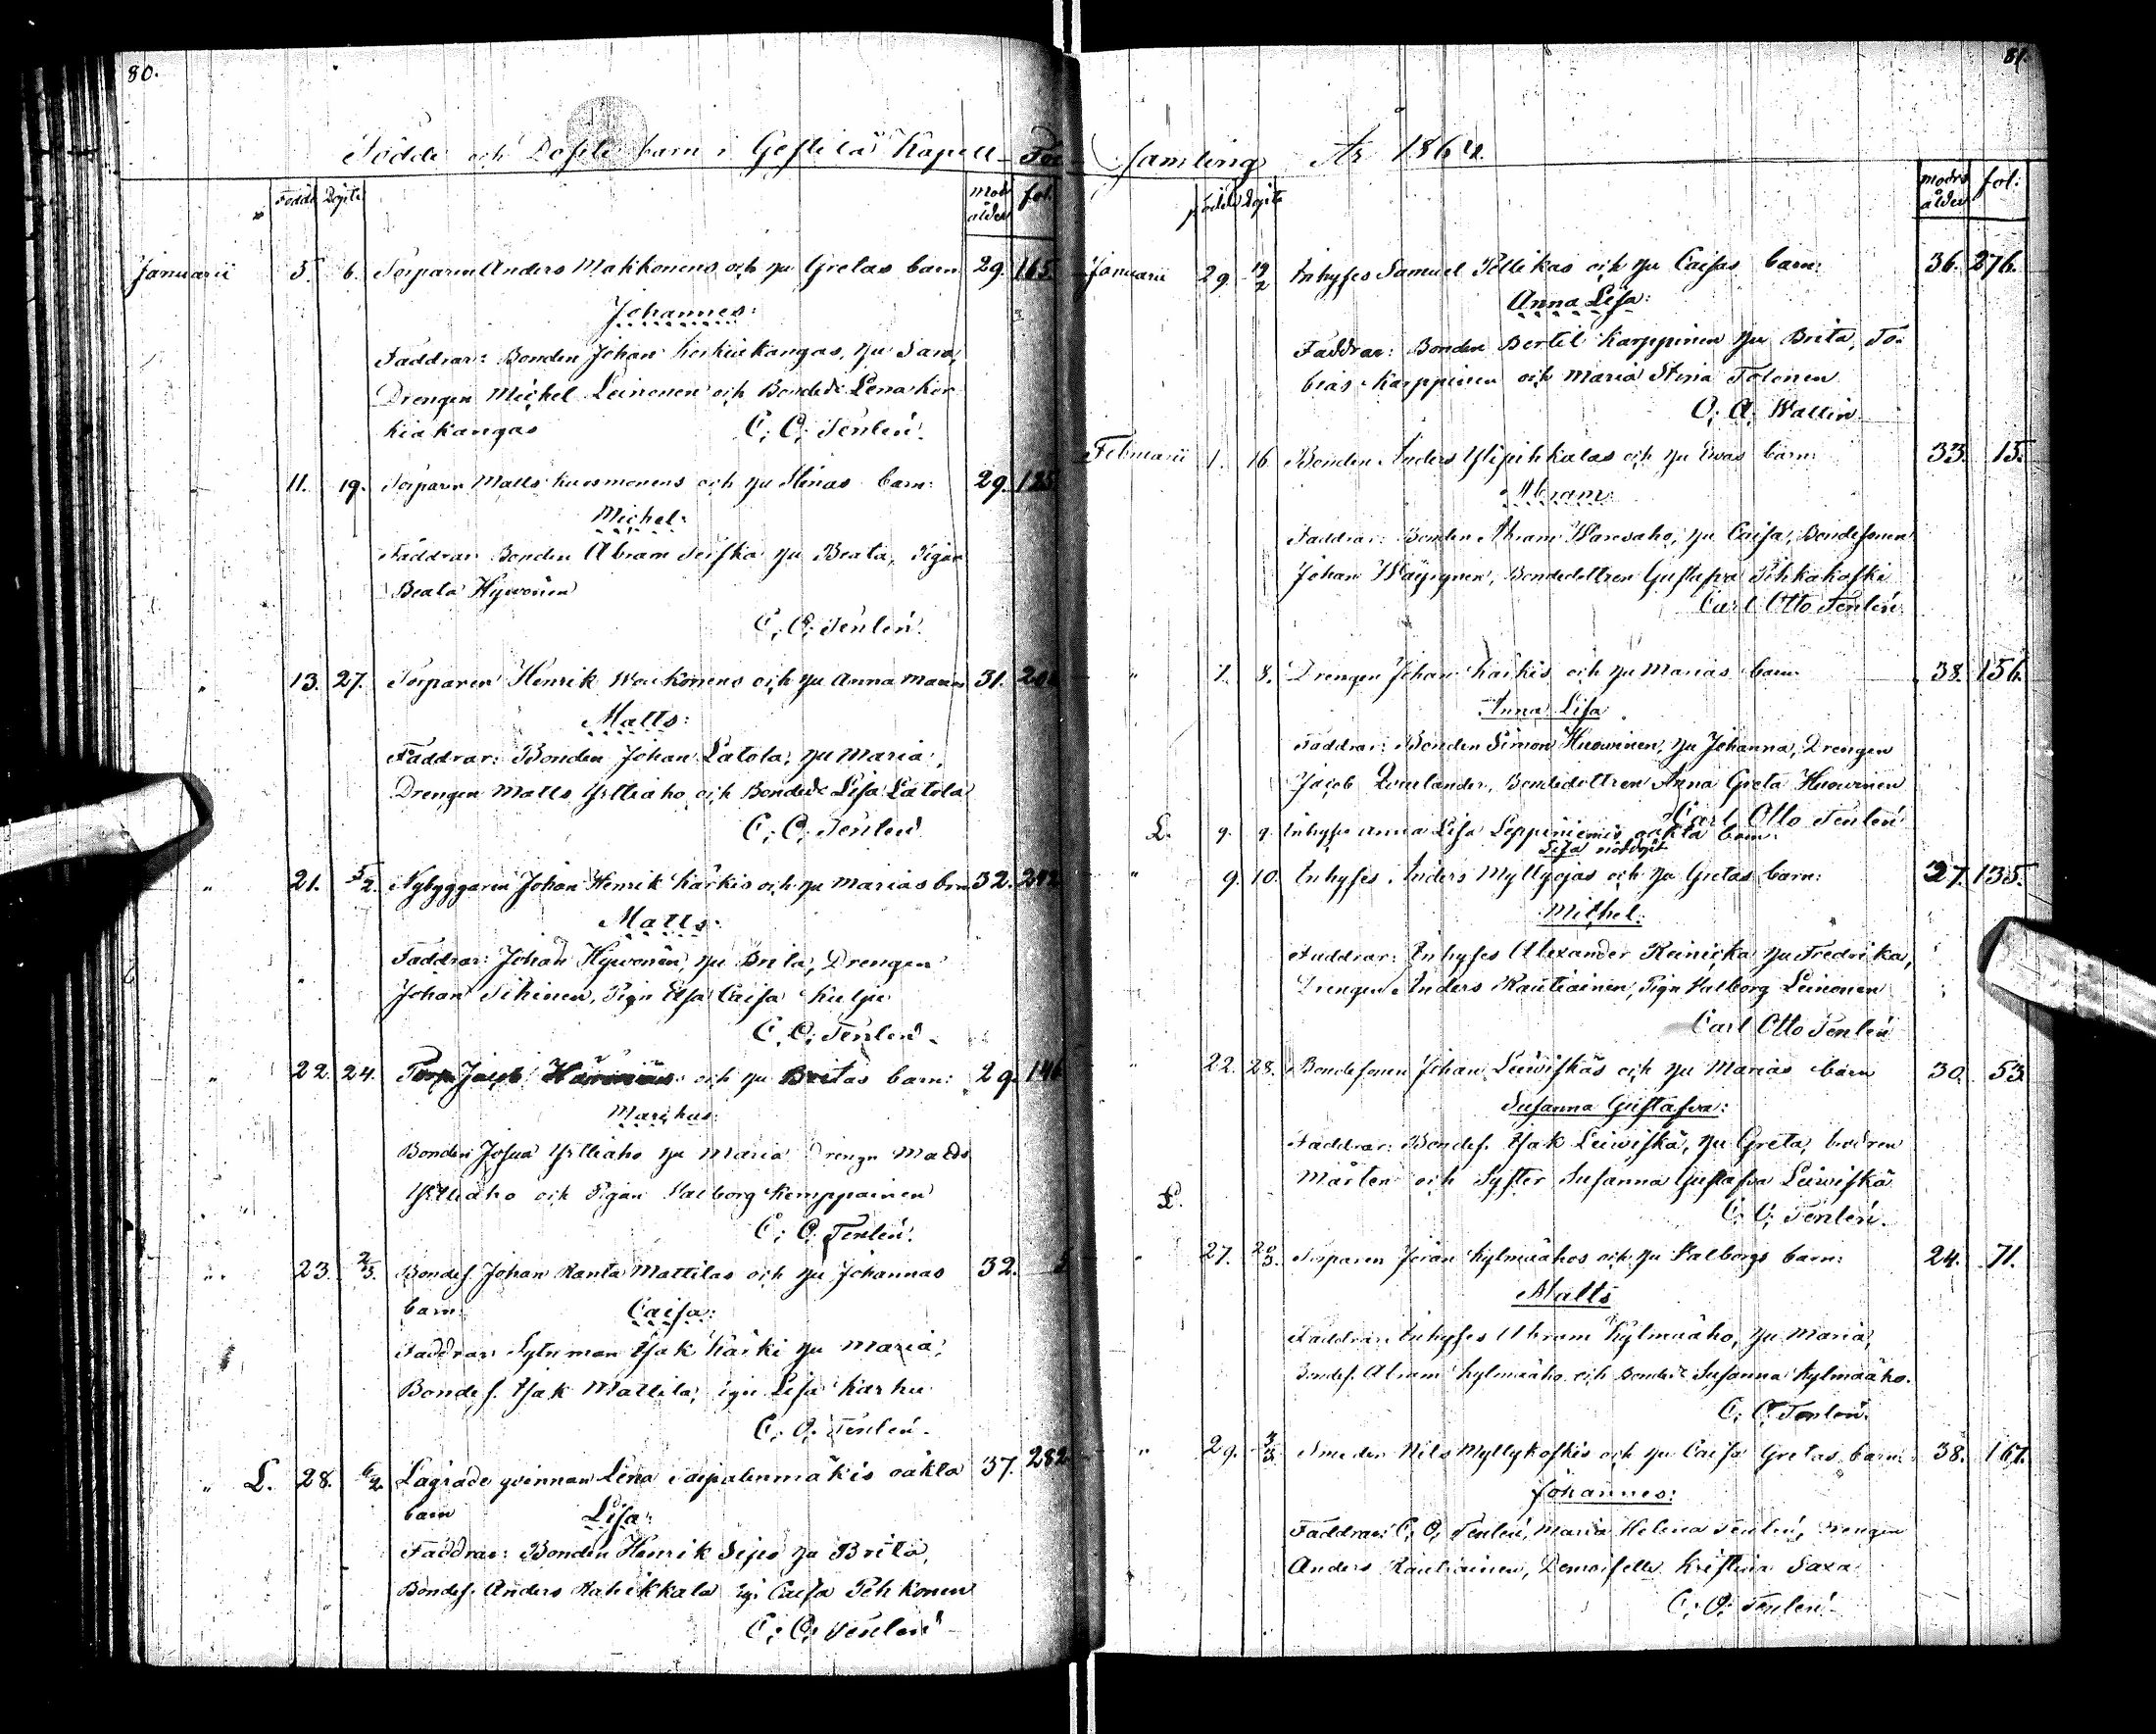 80.
Födde och Döpte barn i Gestilä Kapell-För
Födde Döpte mod. ålder fol.
Januarii 5. 6. Torparen Anders Makkonens och hu Gretas barn 29. 165.
Johannes:
Faddrar: Bonden Johan Korkiakangas, hu Sara,
Drengen Michel Leinonen och Bonded: Lena Kor
kiakangas C. O. Tenlén.
11. 19. Torparen Matts Kuosmonens och hu Stinas barn: 29.
Michel:
Faddrar: Bonden Abram hu Beata, Pigan
Beata Hyvönen
C. O. Tenlén.
" 13. 27. Torparen Henrik och hu Anna 31.
Matts:
Faddrar: Bonden Johan Latola, hu Maria,
Drengen Matts Yrttiaho och Bonded: Lisa Latola
C. O. Tenlén
" 21. 5/2. Nybyggaren Johan Henrik Kärkis och hu Marias brn 32. 242
Matts:
Faddrar: Johan Hyvönen, hu Brita, Drengen
Johan Tihinen, Pign Elsa Caisa Kulju
C. O. Tenlén.
" 22. 24. Torp. Jacob och hu Britas barn: 29. 146
Marckus:
Bonden Josua Yrttiaho hu Maria Drengn Matts
Yrttiaho och Pigan Valborg Kemppainen
C. O. Tenlén.
" 23. 2/3. Bondes. Johan Ranta Mattilas och hu Johannas 32. 5
barn: Caisa:
Faddrar: Sytnman Isak Kärki hu Maria,
Bondes. Isak Mattila, Pign Lisa Karhu
C. O. Tenlén.
" L. 28. 6/2. Lägrade qvinnan Lena oäkta 37. 282
barn Lisa:
Faddrar: Bonden Henrik Sipo hu Brita,
Bondes. Anders Rahikkala Caisa Pehkonen
C. O. Tenlén
81.
samling År 1864.
födde Döpte modrs ålder fol:
Januarii 29. 19/2 Inhyses Samuel Pellikas och hu Caisas barn: 36. 276.
Anna Lisa:
Faddrar: Bonden Bertil Karppinen hu Brita, To-
bias Karppinen och Maria Stina Tolonen
O. A. Wallin
Februarii 1. 16 Bonden Anders Ylipihkalas och hu Evas barn: 33. 15.
Abram:
Faddrar: Bonden Abram Waresaho, hu Caisa, Bondesonen
Johan Wäyrynen, Bondedottren Gustafva Pihkakoski
Carl Otto Tenlén
" 7. 8. Drengen Johan Kärkis och hu Marias barn 38. 156.
Anna Lisa
Faddrar: Bonden Simon Huovinen, hu Johanna, Drengen
Jacob Bondedottren Anna Greta Huovinen
Carl Otto Tenlén
L. 9. 9. Inhyse Anna Lisa Leppiniemis oäkta barn:
Lisa nöddöpt
" 9. 10. Inhyses Anders Myllyojas och hu Gretas barn: 27. 135.
Michel:
Faddrar: Inhyses Alexander Reinicka hu Fredrika,
Drengen Anders Rautiainen, Pign Valborg Leinonen
Carl Otto Tenlén
" 22. 28. Bondesonen Johan Leiviskäs och hu Marias barn 30. 53
Susanna Gustafva:
Faddrar: Bondes. Isak Leiviskä, hu Greta, brodren
Mårten och Syster Susanna Gustafva Leiviskä
L. C. O. Tenlén.
" 27. 20/3. Torparen Kylmäahos och hu Valborgs barn: 24. 71.
Matts
Faddrar: Inhyses Abram Kylmäaho, hu Maria,
Bondes. Abram Kylmäaho och Bonded: Susanna Kylmäaho.
C. O. Tenlén.
" 29. 3/3. Smeden Nils Myllykoskis och hu Caisa Gretas barn: 38. 167.
Johannes:
Faddrar: C. O. Tenlén, Maria Helena Tenlén, Drengen
Anders Rautiainen, Demoiselle Kristina Saxa
C. O. Tenlén.